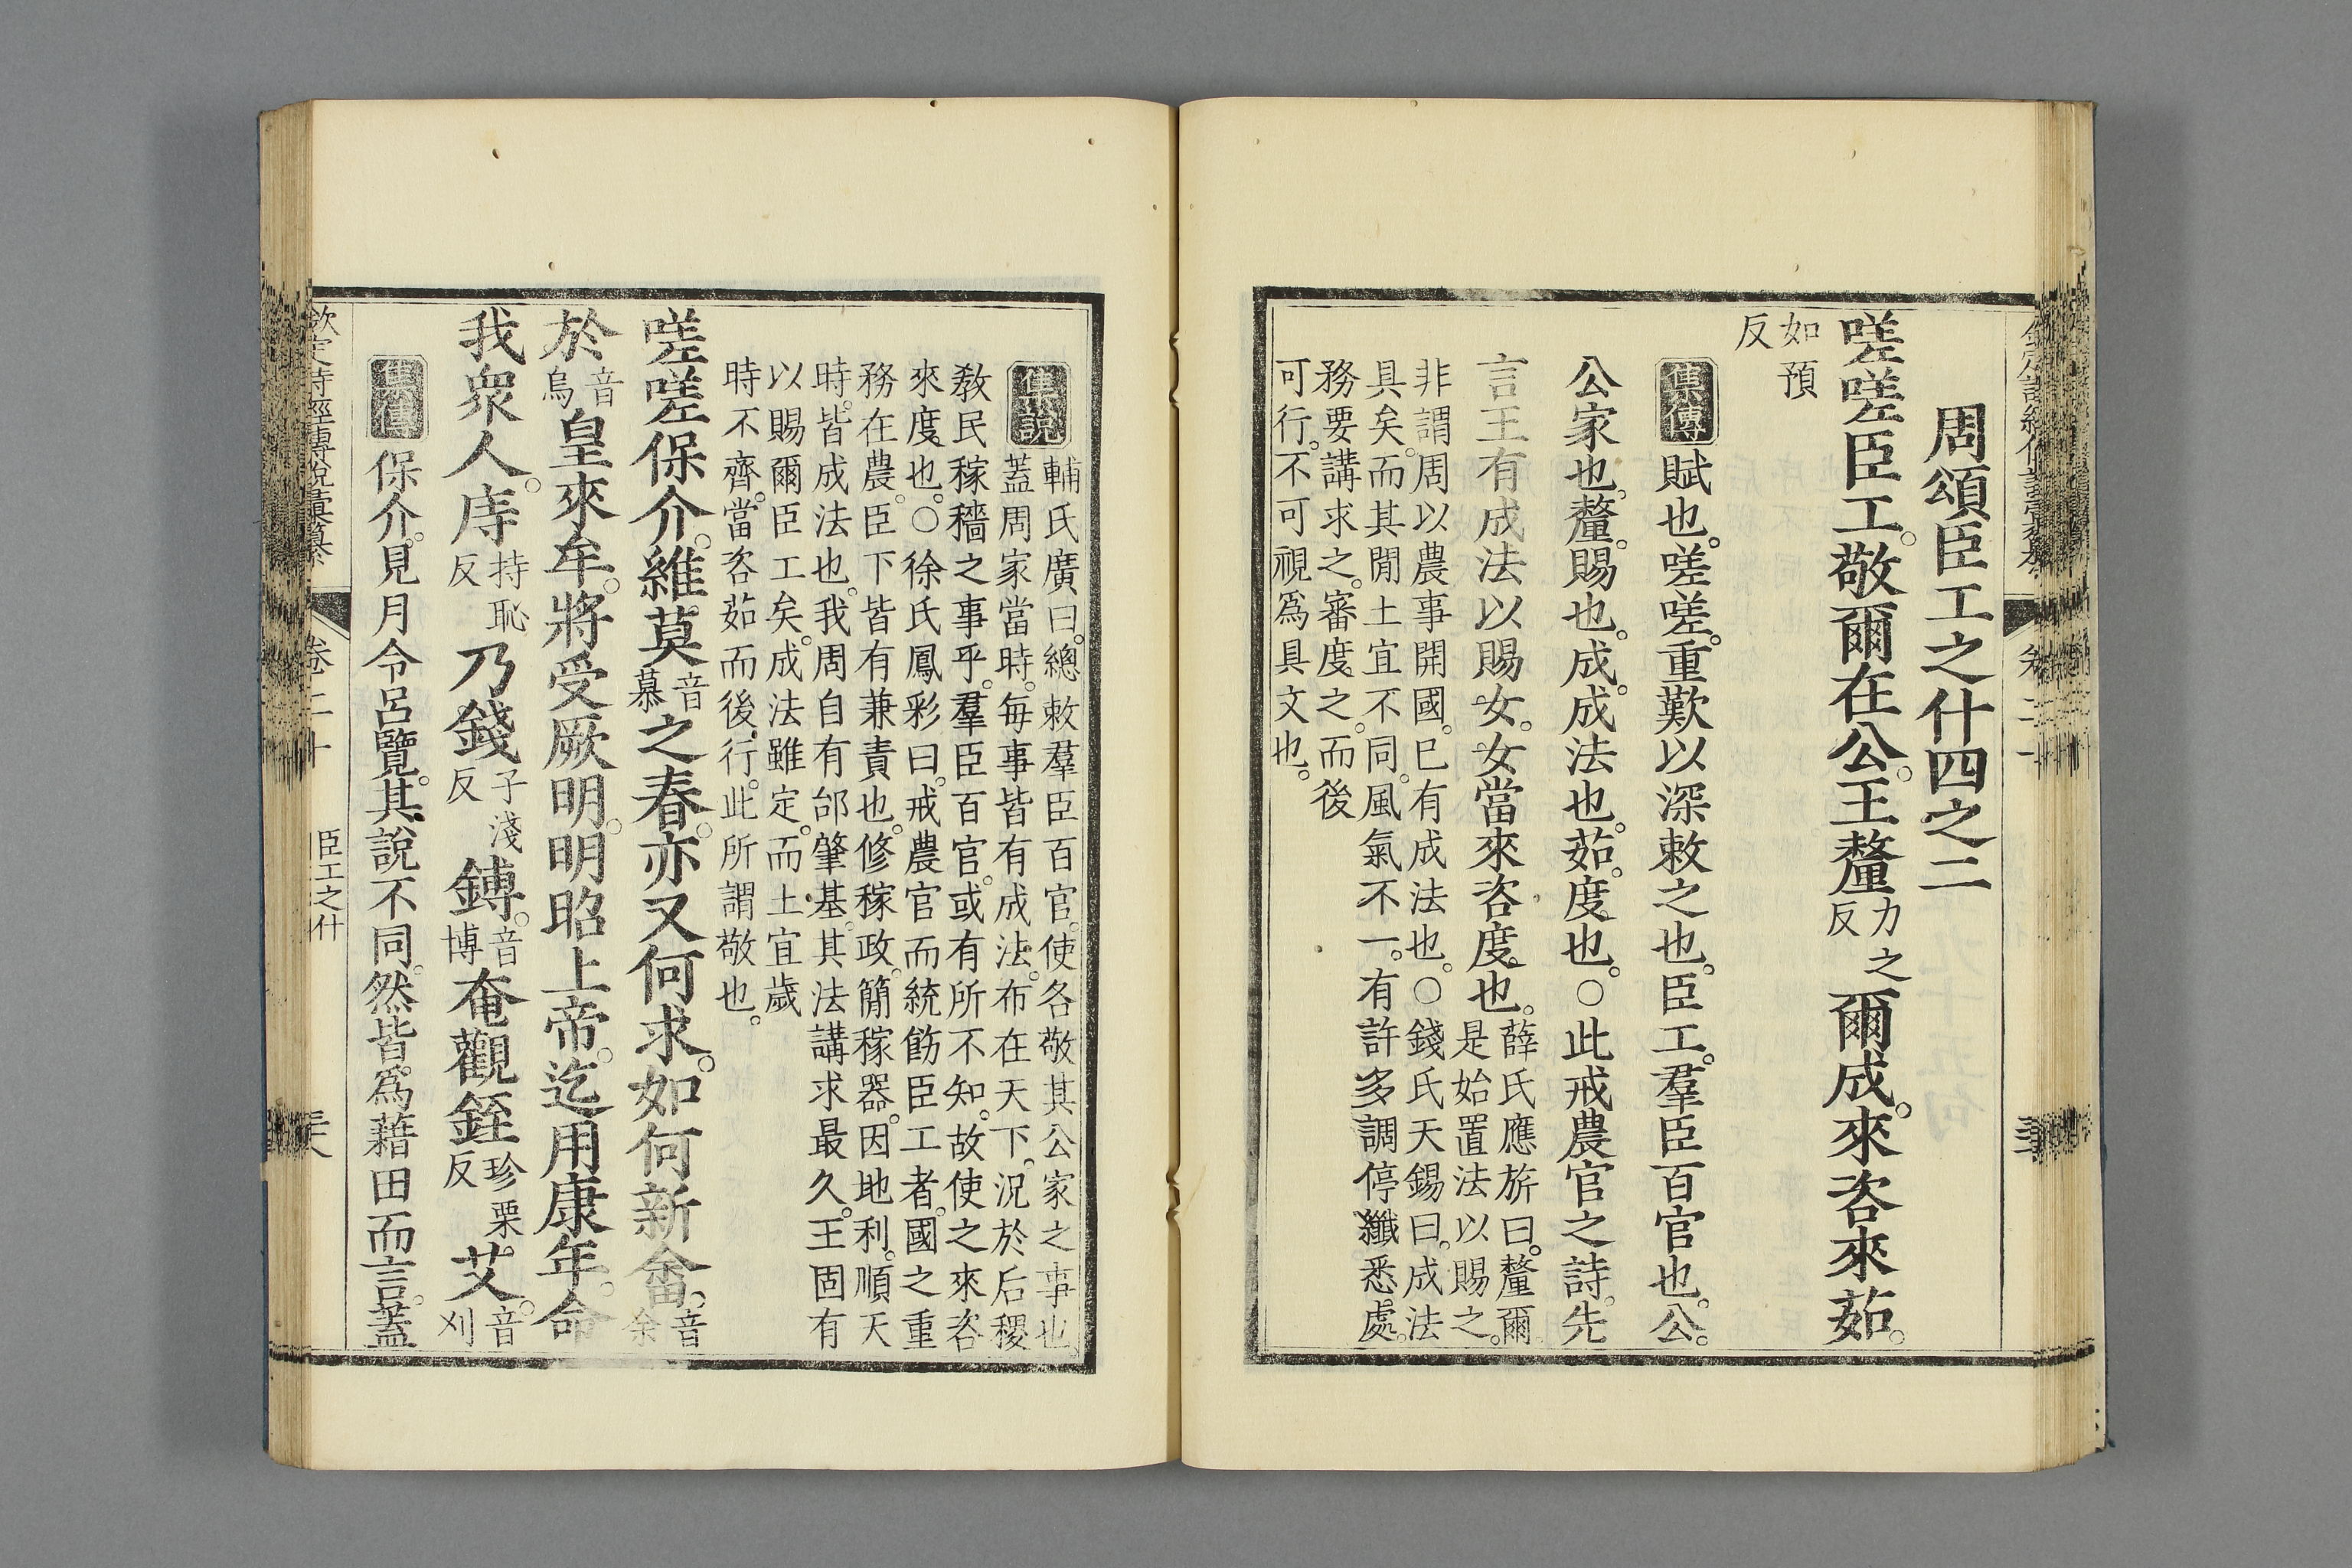 周頌臣工之什四之二
嗟嗟臣工。敬爾在公。王釐力之反爾成。來咨來茹。
如預反
集傳 賦也。嗟嗟。重歎以深敕之也。臣工。羣臣百官也。公。
公家也。釐。賜也。成。成法也。茹。度也。○此戒農官之詩。先
言王有成法以賜女。女當來咨度也。
薛氏應旂曰。釐爾
是始置法以賜之。
非謂周以農事開國。已有成法也。○錢氏天錫曰。成法
具矣。而其閒土宜不同。風氣不一。有許多調停纖悉處。
務要講求之。審度之。而後
可行。不可視爲具文也。
集說
輔氏廣曰。總敕羣臣百官。使各敬其公家之事也。
蓋周家當時。每事皆有成法。布在天下。況於后稷
敎民稼穡之事乎。羣臣百官。或有所不知。故使之來咨
來度也。○徐氏鳳彩曰。戒農官而統飭臣工者。國之重
務在農。臣下皆有兼責也。修稼政。簡稼器。因地利。順天
時。皆成法也。我周自有邰肇基。其法講求最久。王固有
以賜爾臣工矣。成法雖定。而土宜歲
時不齊。當咨茹而後行。此所謂敬也。
嗟嗟保介。維莫音慕之春。亦又何求。如何新畬。音余
於音烏皇來牟。將受厥明。明昭上帝。迄用康年。命
我衆人。庤持恥反乃錢子淺反鎛。音博奄觀銍珍栗反艾。音刈
集傳 保介。見月令呂覽。其說不同。然皆爲藉田而言。蓋
欽定詩經傳說彙纂
卷二十
臣工之什